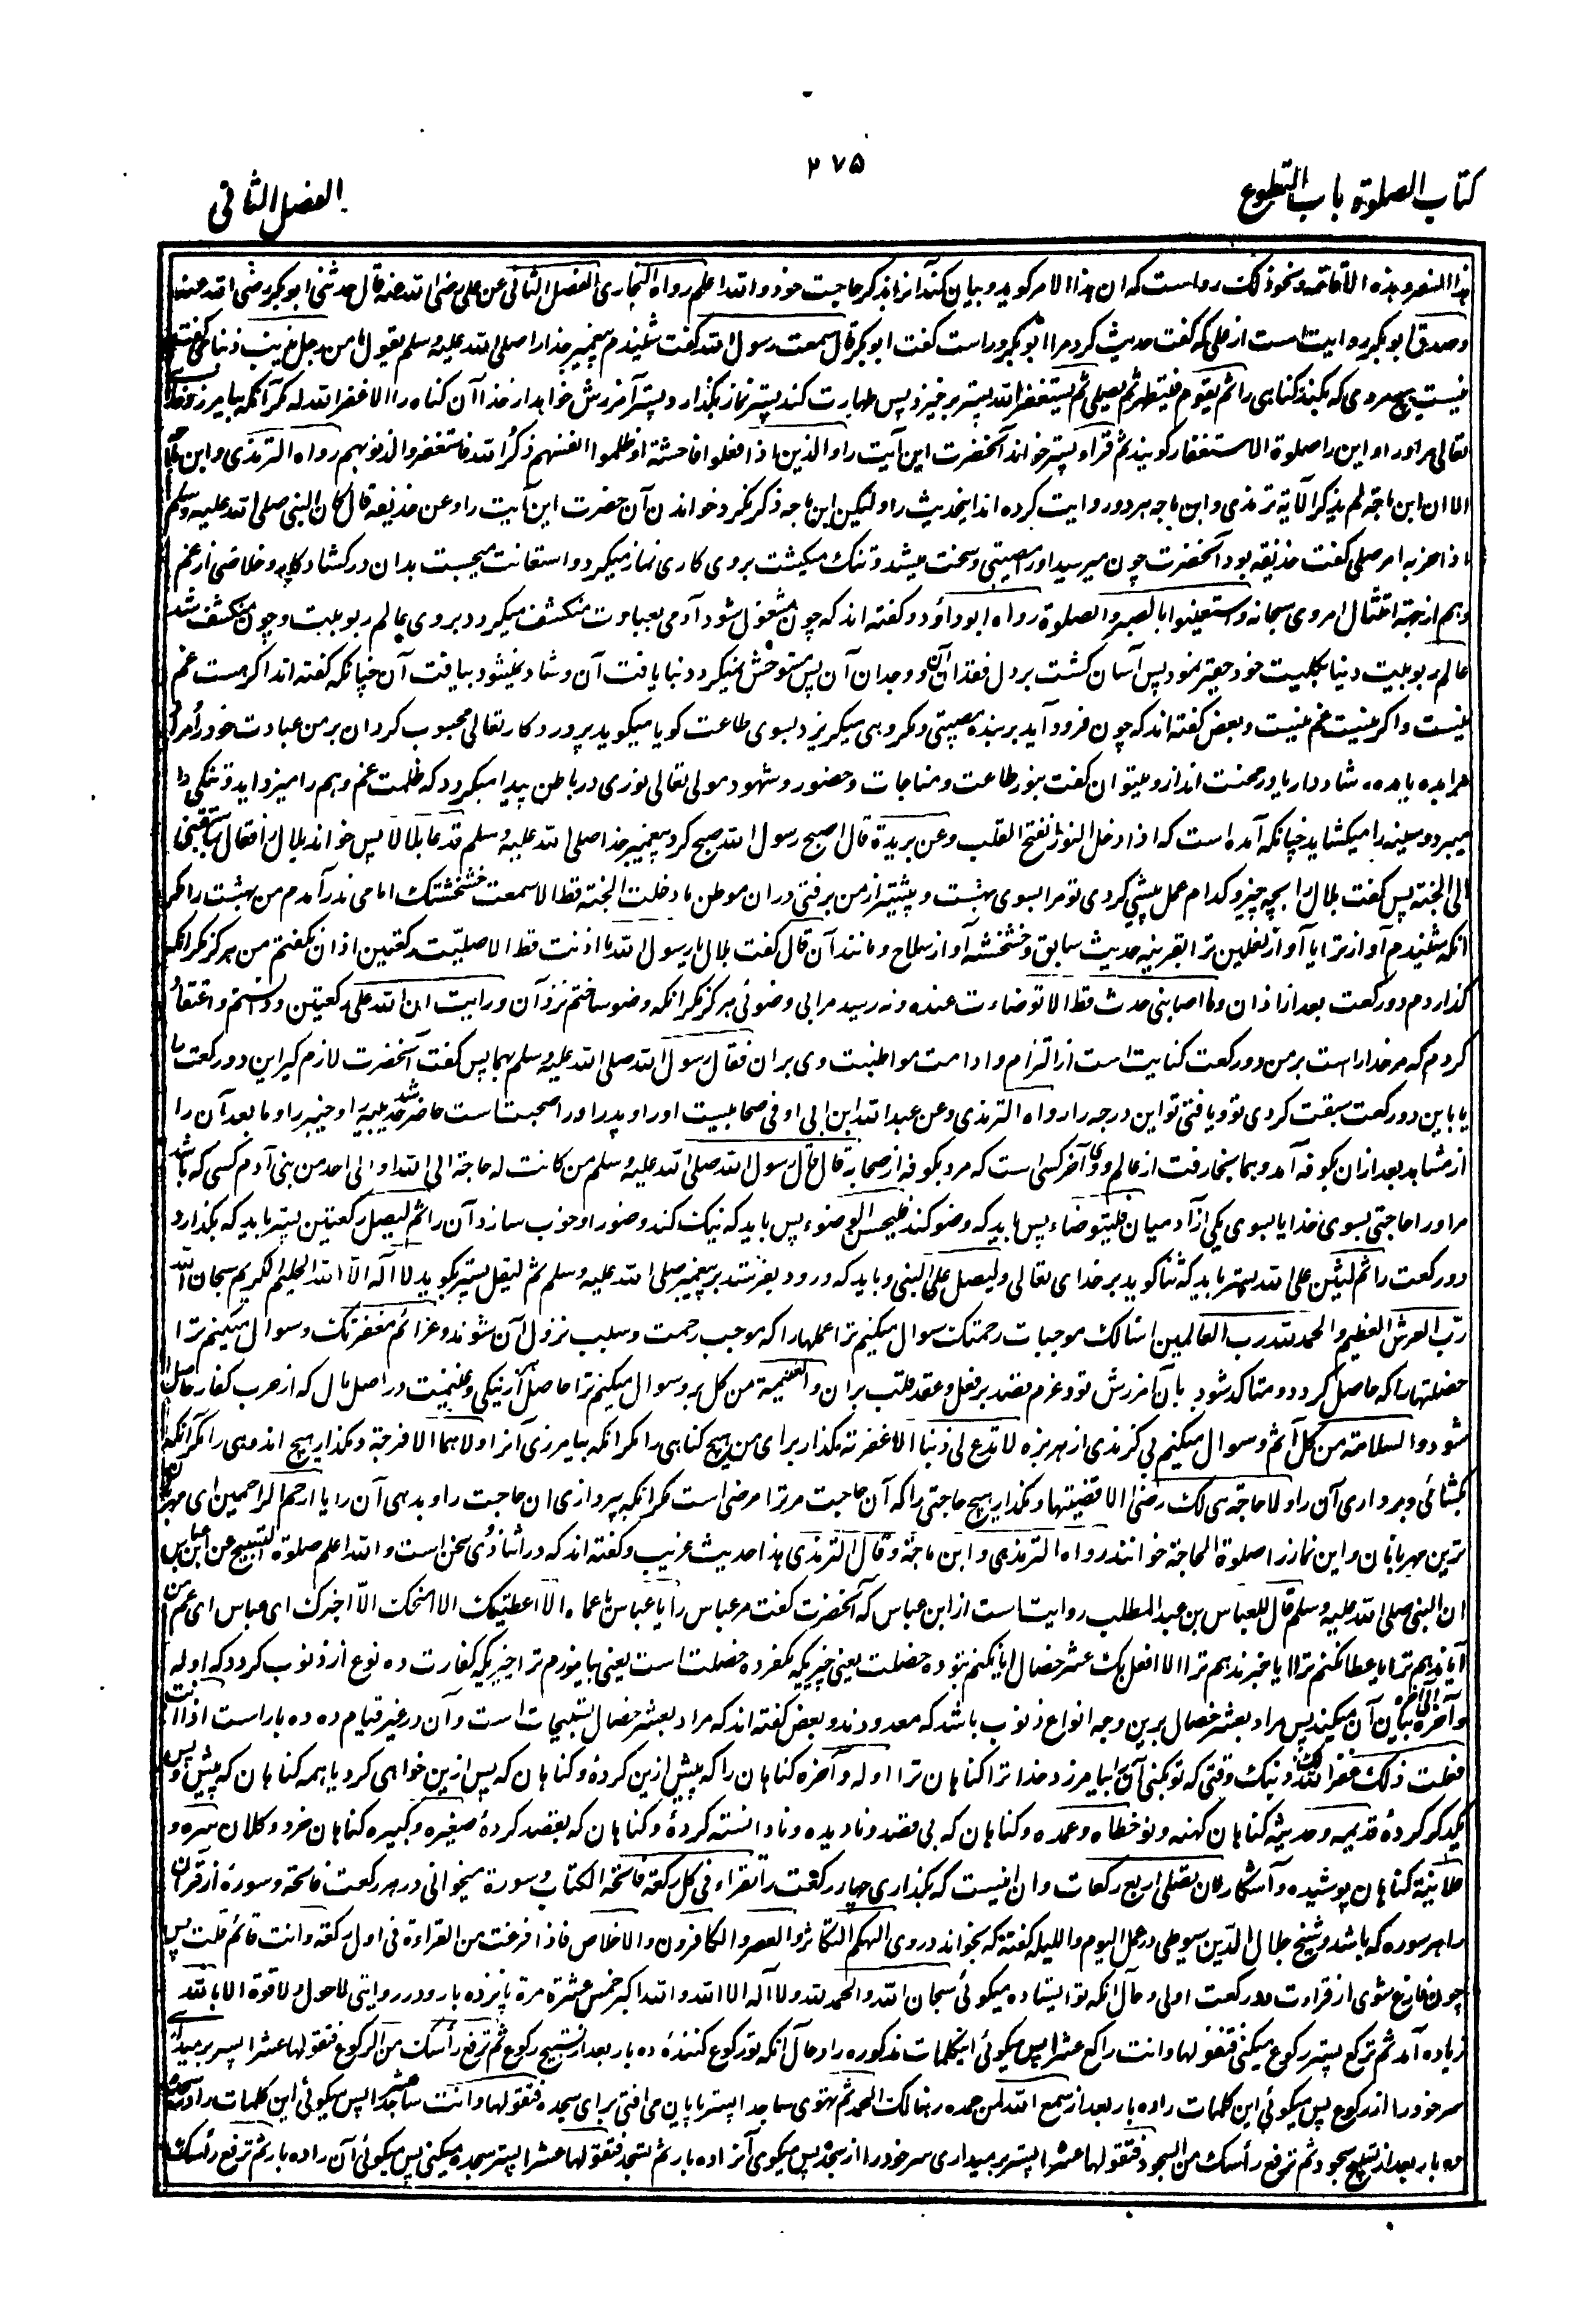 ۲۷۵
کتاب الصلوة باب التطوع
الفصل الثانی
هذا السفر و هذه الاقامة و نحو ذلک رواست که ان هذا الامر گوید و بیان کند آنرا بذکر حاجت خود و الله اعلم رواه البخاری الفصل الثانی عن علی رضی الله عنه قال حدثنی ابوبکر رضی الله عنه
و صدق ابوبکر روایت است از علی که گفت حدیث کرد مرا ابوبکر و راست گفت ابوبکر قال سمعت رسول الله گفت شنیدم پیغمبر خدا را صلی الله علیه وسلم یقول ما من رجل یذنب ذنبا گفت
نیست هیچ مردی که بکند گناهی را ثم یقوم فیتطهر ثم یصلی ثم یستغفر الله پستر برخیزد پس طهارت کند پستر نماز بگذارد و پستر آمرزش خواهد از خدا آن گناه را الا غفر الله له مگر آنکه بیامرزد خدا
تعالی مر اورا و این را صلوة الاستغفار گویند ثم قرأ و پستر خواند آنحضرت این آیت را و الذین اذا فعلوا فاحشة او ظلموا انفسهم ذکروا الله فاستغفروا لذنوبهم رواه الترمذی و ابن ماجة
الا ان ابن ماجة لم یذکر الآیة ترمذی و ابن ماجه هر دو روایت کرده اند این حدیث را و لیکن ابن ماجه ذکر نکرد خواندن آن حضرت این آیت را و عن حذیفة قال کان النبی صلی الله علیه وسلم
اذا حزبه امر صلی گفت حذیفه بود آنحضرت چون میرسید او را مصیبتی و سخت میشد و تنگ میگشت بروی کاری نماز میکرد و استعانت میجست بدان در گشاد کار و خلاصی از غم
و هم از جهة امتثال امر وی سبحانه و استعینوا بالصبر و الصلوة رواه ابوداؤد و گفته اند که چون مشغول شود آدمی بعبادت منکشف میگردد بروی عالم ربوبیت و چون منکشف شد
عالم ربوبیت دنیا بکلیت خود حقیر نمود پس آسان گشت بر دل فقدان آن و وجدان آن پس متوحش نمیگردد بنا یافت آن و شاد نمیشود بیافت آن چنانکه گفته اند اگر هست غم
نیست و اگر نیست غم نیست و بعض گفته اند که چون فرود آید بر بنده مصیبتی و مکروهی میگریزد بسوی طاعت گویا میگوید پروردگار تعالی محبوب گردان بر من عبادت خود را
مرا بده یا مده شاد دار یا در محنت انداز و میتوان گفت بنور طاعت و مناجات و حضور و شهود مولی تعالی نوری در باطن پیدا میگردد که ظلمت غم و هم را میزداید و تنگی را
میبرد و سینه را میگشاید چنانکه آمده است که اذا دخل النور انفتح القلب و عن بریدة قال اصبح رسول الله صبح کرد پیغمبر خدا صلی الله علیه وسلم فدعا بلالا پس خواند بلال را فقال بما سبقتنی
الی الجنة پس گفت بلال را بچه چیز و کدام عمل پیشی کردی تو مرا بسوی بهشت و پیشتر از من برفتی دران موطن ما دخلت الجنة قط الا سمعت خشخشتک امامی ندر آمدم من بهشت را مگر
آنکه شنیدم آواز ترا یا آواز نعلین ترا بقرینه حدیث سابق و خشخشه آواز سلاح و مانند آن قال گفت بلال یا رسول الله ما اذنت قط الا صلیت رکعتین اذان نگفتم من هرگز مگر آنکه
گذاردم دو رکعت بعد از اذان و ما اصابنی حدث قط الا توضأت عنده و نه رسید مرا بی وضوئی هرگز مگر آنکه وضو ساختم نزد آن و رایت ان لله علی رکعتین و دانستم و اعتقاد
کردم که مر خدا را است بر من دو رکعت کنایت است از التزام و ادامت مواظبت وی بران فقال رسول الله صلی الله علیه وسلم بهما پس گفت آنحضرت لازم گیر این دو رکعت را
یا باین دو رکعت سبقت کردی تو و یافتی تو این درجه را رواه الترمذی و عن عبدالله ابن ابی اوفی صحابیست او را و پدر او را صحبت است حاضر شد حدیبیه او خیبر را و ما بعد آن را
از مشاهد بعد ازان بکوفه آمد و بهمانجا رفت از عالم و وی آخر کسی است که مرد بکوفه از صحابة قال قال رسول الله صلی الله علیه وسلم من کانت له حاجة الی الله او الی احد من بنی آدم کسی که باشد
مر اورا حاجتی بسوی خدا یا بسوی یکی از آدمیان فلیتوضاء پس باید که وضو کند فلیحسن الوضوء پس باید که نیک کند وضو را و خوب سازد آن را ثم لیصل رکعتین پستر باید که بگذارد
دو رکعت را ثم لیثن علی الله پستر باید که ثنا گوید بر خدای تعالی و لیصل علی النبی و باید که درود بفرستد بر پیغمبر صلی الله علیه وسلم ثم لیقل پستر بگوید لا اله الا الله الحلیم الکریم سبحان الله
رب العرش العظیم و الحمد لله رب العالمین اسالک موجبات رحمتک سوال میکنم ترا عملها را که موجب رحمت و سبب نزول آن شوند و عزائم مغفرتک و سوال میکنم ترا
خصلتها را که حاصل گردد و متأکد شود بآن آمرزش تو و عزم قصد بر فعل و عقد قلب بران و الغنیمة من کل بر و سوال میکنم ترا حاصل از نیکی و غنیمت در اصل مال که از حرب کفار حاصل
شود و السلامة من کل اثم و سوال میکنم بی گزندی از هر بزه لا تدع لی ذنبا الا غفرته مگذار برای من هیچ گناهی را مگر آنکه بیامرزی آنرا و لا هما الا فرجته و مگذار هیچ اندوهی را مگر آنکه
بکشائی و برداری آن را و لا حاجة هی لک رضی الا قضیتها و مگذار هیچ حاجتی را که آن حاجت مر ترا مرضی است مگر آنکه بپردازی ان حاجت را و بدهی آن را یا ارحم الراحمین ای مهربان
ترین مهربانان و این نماز را صلوة الحاجة خوانند رواه الترمذی و ابن ماجة و قال الترمذی هذا حدیث غریب و گفته اند که در اسنادوی سخن است و الله اعلم صلوة التسبیح عن ابن عباس
ان النبی صلی الله علیه وسلم قال للعباس بن عبدالمطلب روایت است از ابن عباس که آنحضرت گفت مر عباس را یا عباس یا عماه الا اعطیک الا امنحک الا اخبرک ای عباس ای عم من
آیا ندهم ترا آیا عطا نکنم ترا آیا خبر ندهم ترا الا افعل بک عشر خصال آیا نکنم بتو ده خصلت یعنی چیزیکه مکفر ده خصلت است یعنی بیاموزم ترا چیزیکه کفارت ده نوع از ذنوب گردد که اوله
و آخره الی آخره بیان آن میکند پس مراد بعشر خصال برین وجه انواع ذنوب باشد که معدودند و بعض گفته اند که مراد بعشر خصال تسبیحات است و آن در غیر قیام ده ده بار است اذا انت
فعلت ذلک غفر الله لک ذنبک وقتی که تو بکنی آن را بیامرزد خدا ترا گناهان ترا اوله و آخره گناهان را که پیش ازین کردهٔ و گناهان که پس ازین خواهی کرد یا همه گناهان که پیش و پس
یکدیگر کردهٔ قدیمه و حدیثه گناهان کهنه و نو خطاه و عمده و گناهان که بی قصد و نادیده و نادانسته کردهٔ و گناهان که بقصد کردهٔ صغیره و کبیره گناهان خرد و کلان سره و
علانیته گناهان پوشیده و آشکارا ان تصلی اربع رکعات و ان اینست که بگذاری چهار رکعت را تقراء فی کل رکعة فاتحة الکتاب و سورة میخوانی در هر رکعت فاتحه و سورهٔ از قرآن
را هر سوره که باشد و شیخ جلال الدین سیوطی در عمل الیوم و اللیله گفته که بخواند در وی الهکم التکاثر و العصر و الکافرون و الاخلاص فاذا فرغت من القراءة فی اول رکعة و انت قائم قلت پس
چون فارغ شوی از قراءت در رکعت اولی و حال آنکه تو ایستاده میگوئی سبحان الله و الحمد لله و لا اله الا الله و الله اکبر خمس عشرة مرة پانزده بار و در روایتی لا حول و لا قوة الا بالله
زیاده آمد ثم ترکع پستر رکوع میکنی فتقولها و انت راکع عشرا پس میگوئی اینکلمات مذکوره را و حال آنکه تو رکوع کنندهٔ ده بار بعد از تسبیح رکوع ثم ترفع رأسک من الرکوع فتقولها عشرا پستر برمیداری
سر خود را از رکوع پس میگوئی این کلمات را ده بار بعد از سمع الله لمن حمده ربنا لک الحمد ثم تهوی ساجدا پستر پایان می افتی برای سجده فتقولها و انت ساجد عشرا پس میگوئی این کلمات را در سجده
ده بار بعد از تسبیح سجود ثم ترفع رأسک من السجود فتقولها عشرا پستر برمیداری سر خود را از سجده پس میگوئی آنرا ده بار ثم تسجد فتقولها عشرا پستر سجده میکنی پس میگوئی آن را ده بار ثم ترفع رأسک